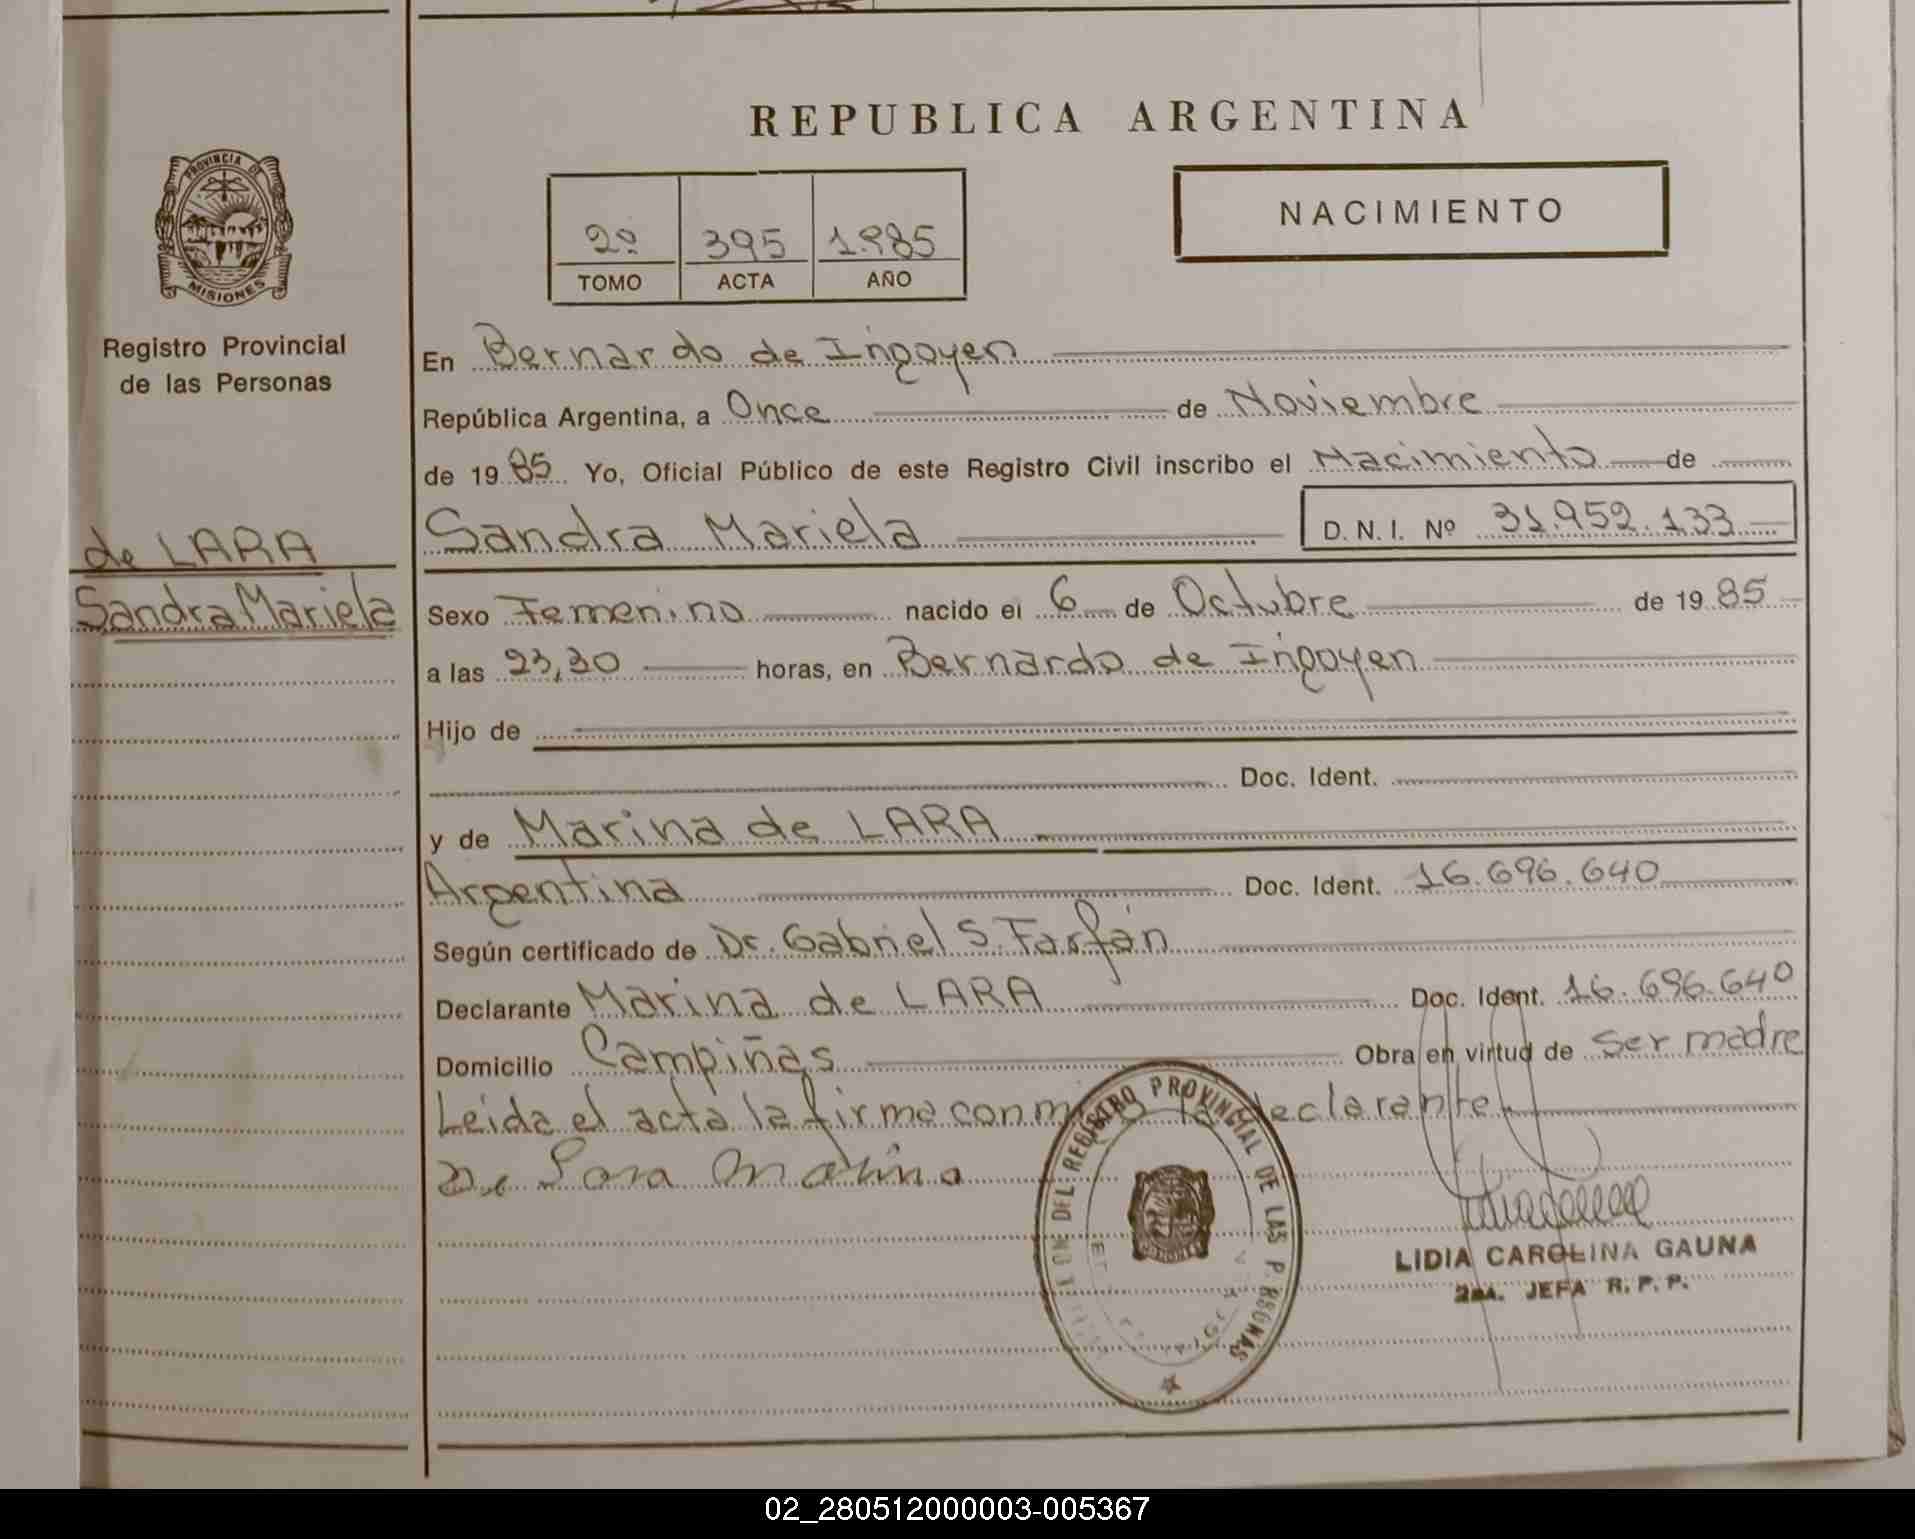 REPUBLICA ARGENTINA
PROVINCIA DE
MISIONES
Registro Provincial
de las Personas
2º 395 1.985
TOMO ACTA AÑO
NACIMIENTO
En Bernardo de Irigoyen
República Argentina, a Once de Noviembre
de 1985 Yo, Oficial Público de este Registro Civil inscribo el Nacimiento de
Sandra Mariela D. N. I. Nº 31.952.133
de LARA
Sandra Mariela
Sexo Femenino nacido el 6 de Octubre de 1985
a las 23,30 horas, en Bernardo de Irigoyen
Hijo de
Doc. Ident.
y de Marina de LARA
Argentina Doc. Ident. 16.696.640
Según certificado de Dr. Gabriel S. Farfán
Declarante Marina de LARA Doc. Ident. 16.696.640
Domicilio Campiñas Obra en virtud de Ser madre
Leida el acta la firma conmigo la declarante
De Lara Marina
DEL REGISTRO PROVINCIAL DE LAS PERSONAS
LIDIA CAROLINA GAUNA
2da. JEFA R. P. P.
02_280512000003-005367